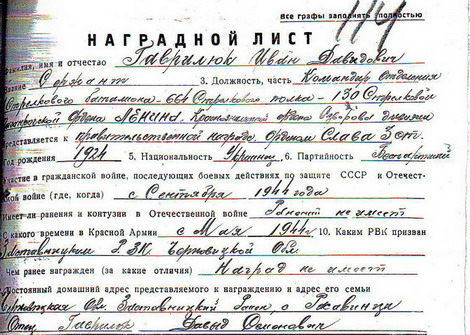 Все графы заполнять полностью
114
НАГРАДНОЙ ЛИСТ
Фамилия, имя и отчество Гаврилюк Иван Давидович
Звание Сержант 3. Должность, часть Командир отделения
Стрелкового батальона - 664 Стрелкового полка - 130 Стрелковой
Ордена ЛЕНИНА, Краснознаменной ордена Суворова дивизии
Представляется к правительственной награде Орденом Слава 3 ст.
Год рождения 1924 5. Национальность Украинец 6. Партийность Беспартийный
Участие в гражданской войне, последующих боевых действиях по защите СССР и Отечест-
ной войне (где, когда) с Сентября 1944 года
Имеет ли ранения и контузии в Отечественной войне Ранений не имеет
С какого времени в Красной Армии с Мая 1944 г. 10. Каким РВК призван
Заставницким Р.В.К. Черновицкой Обл.
Чем ранее награжден (за какие отличия) Наград не имеет
Постоянный домашний адрес представляемого к награждению и адрес его семьи
Обл. Заставницкий Район, с Ржавинца
Отец Гаврилюк Давыд